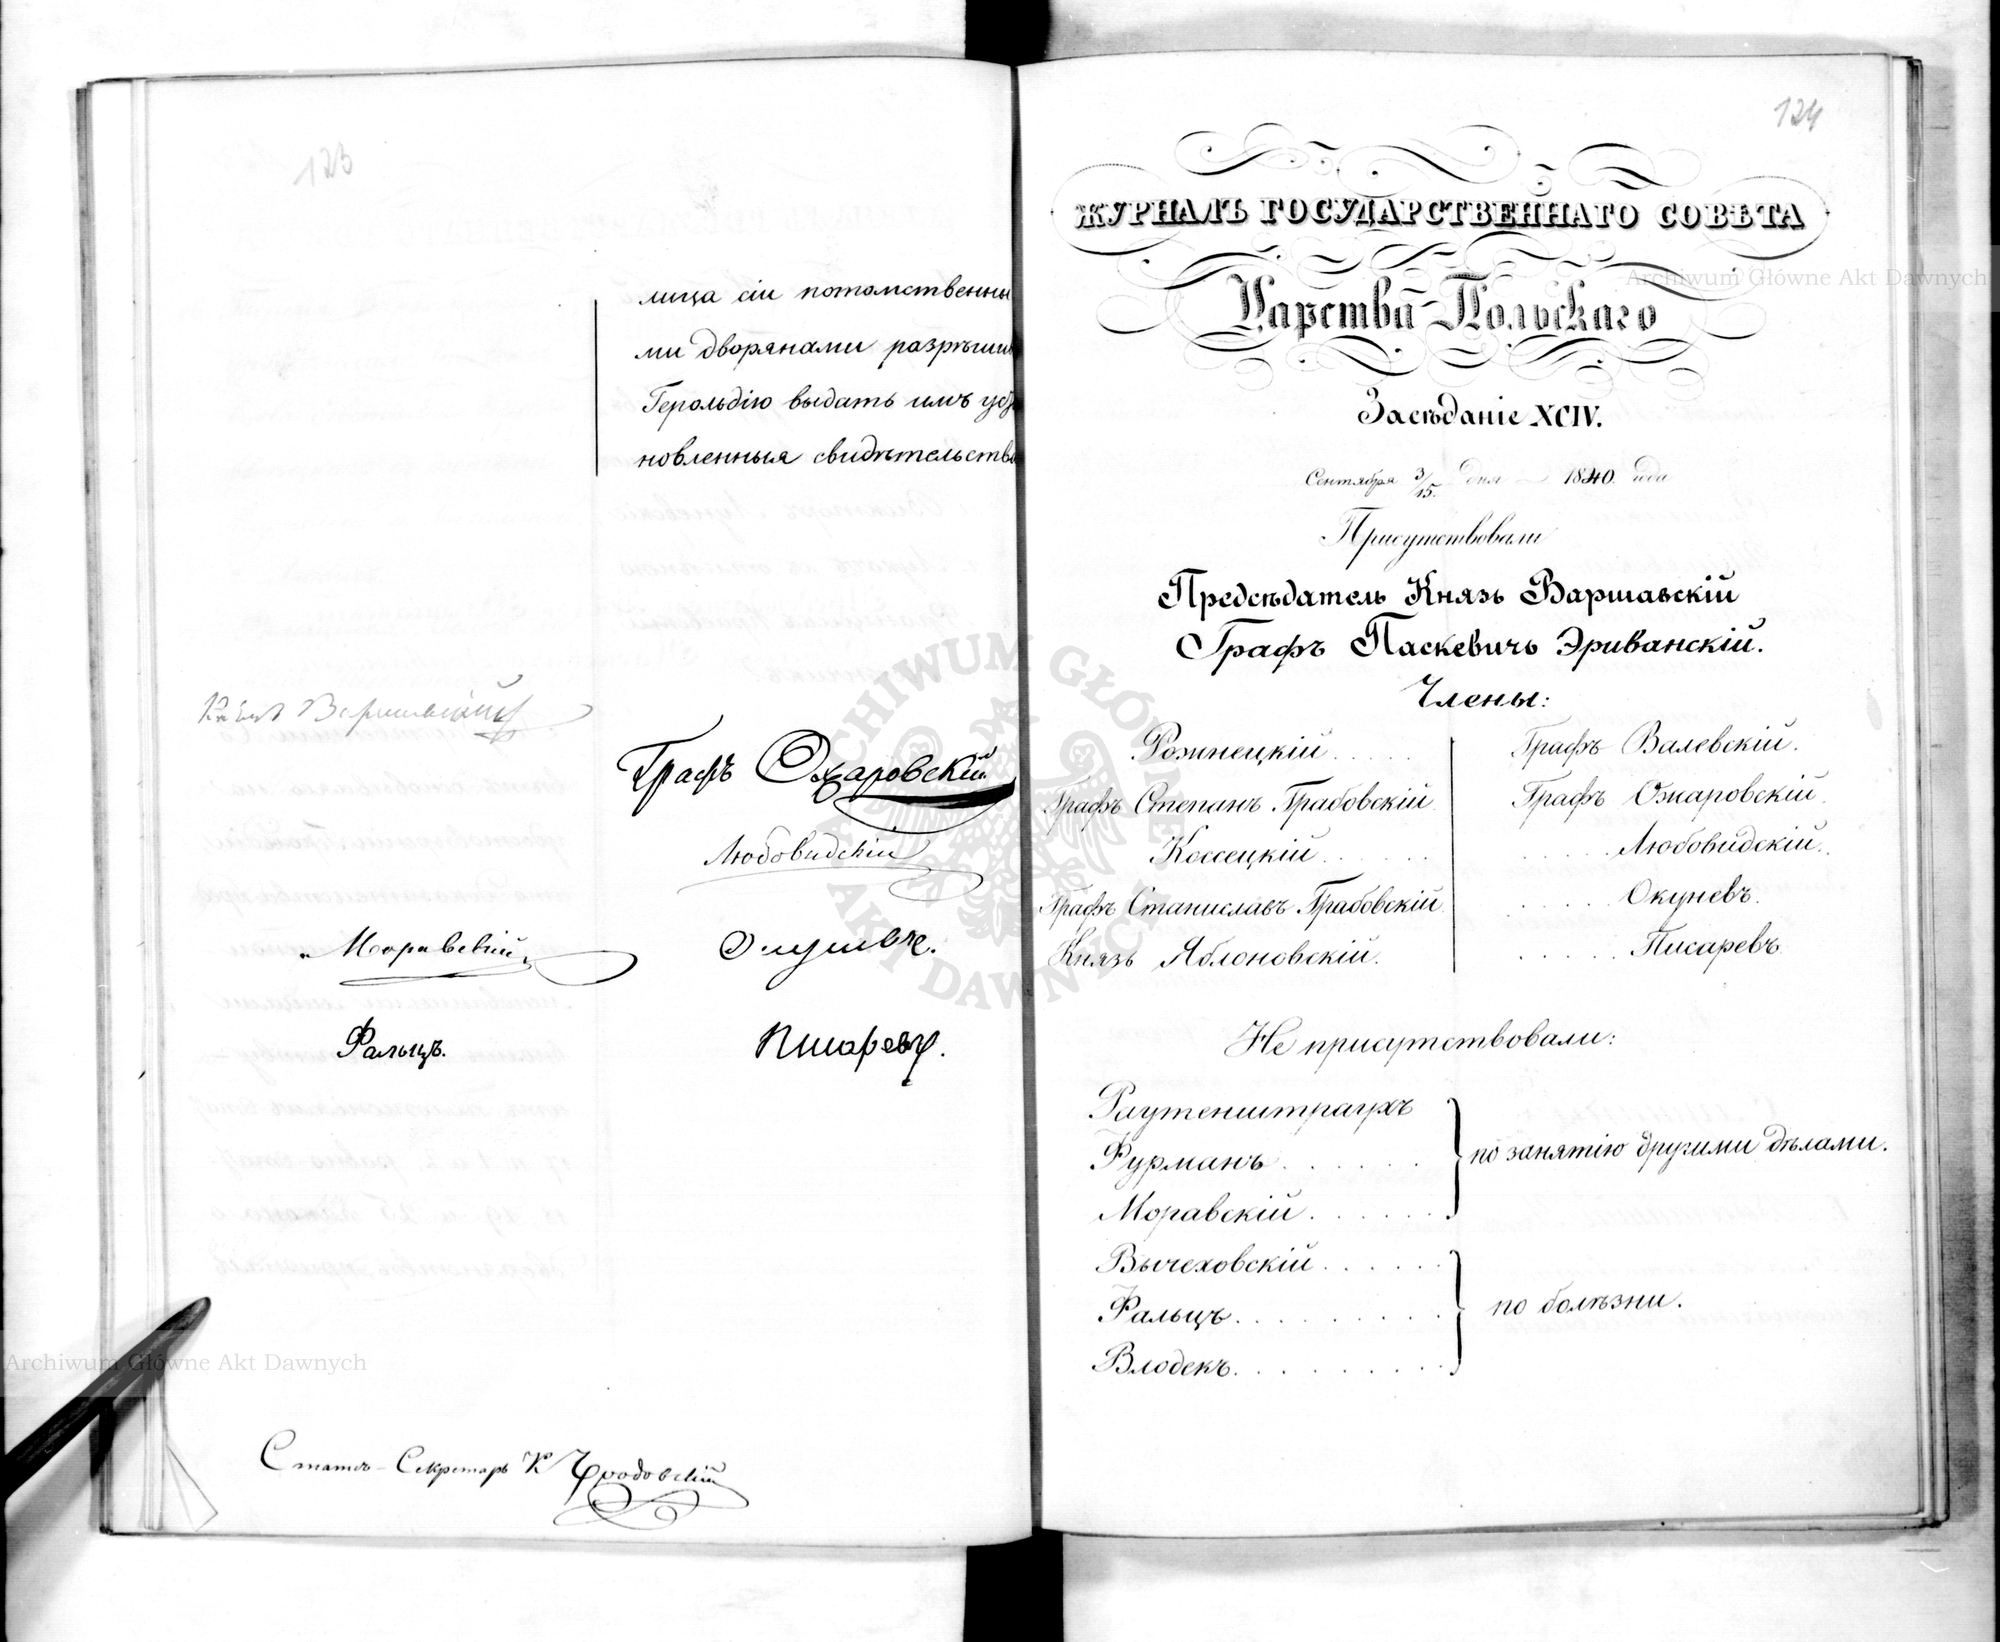 123
лица сіи потомственны
ми дворянами разрѣшить
Герольдію выдать имъ уст
новленныя свидѣтельства
Князь Варшавскій
Графъ Ожаровскій
Любовидскій
Моравскій
Окуневъ.
Фальцъ.
Писаревъ.
Статсъ-Секретарь К
124
ЖУРНАЛЪ ГОСУДАРСТВЕННАГО СОВѢТА
Царства Польскаго
Засѣданіе XCIV.
Сентября 3/15. дня 1840. года
Присутствовали
Предсѣдатель Князь Варшавскій
Графъ Паскевичъ Эриванскій.
Члены:
Рожнецкій.....
Графъ Степанъ Грабовскій
Коссецкій......
Графъ Станиславъ Грабовскій
Князь Яблоновскій.
Графъ Валевскій.
Графъ Ожаровскій.
.....Любовидскій.
.....Окуневъ.
.....Писаревъ.
Не присутствовали:
Раутенштраухъ
Фурманъ......
Моравскій......
по занятію другими дѣлами.
Вычеховскій......
Фальцъ.........
Влодекъ.........
по болѣзни.
Archiwum Główne Akt Dawnych
ARCHIWUM GŁÓWNE AKT DAWNYCH
Archiwum Główne Akt Dawnych